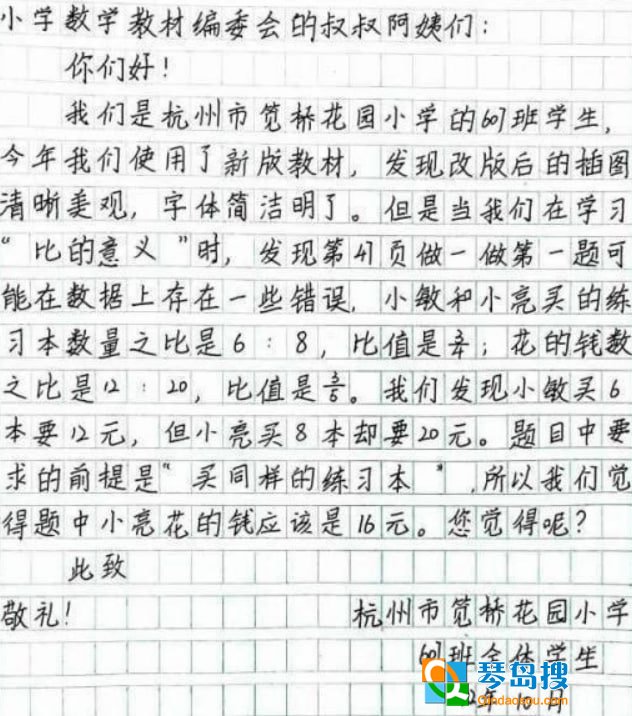 小学数学教材编委会的叔叔阿姨们：
你们好！
我们是杭州市笕桥花园小学的607班学生，
今年我们使用了新版教材，发现改版后的插图
清晰美观，字体简洁明了。但是当我们在学习
“比的意义”时，发现第41页做一做第一题可
能在数据上存在一些错误，小敏和小亮买的练
习本数量之比是6：8，比值是3/4；花的钱数
之比是12：20，比值是3/5。我们发现小敏买6
本要12元，但小亮买8本却要20元。题目中要
求的前提是“买同样的练习本”，所以我们觉
得题中小亮花的钱应该是16元。您觉得呢？
此致
敬礼！
杭州市笕桥花园小学
607班全体学生
年10月
琴岛搜
Qindaosou.com